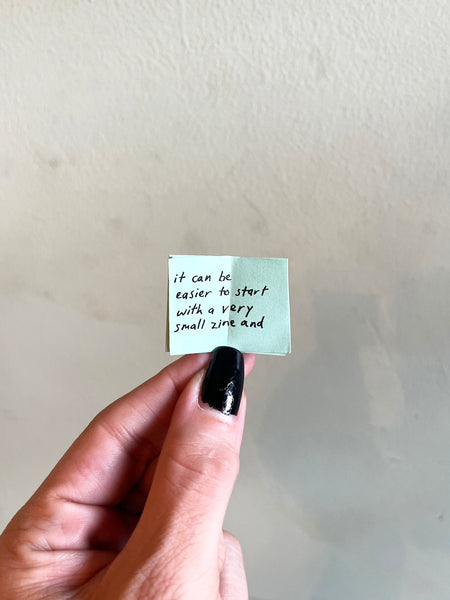 it can be
easier to start
with a very
small zine and